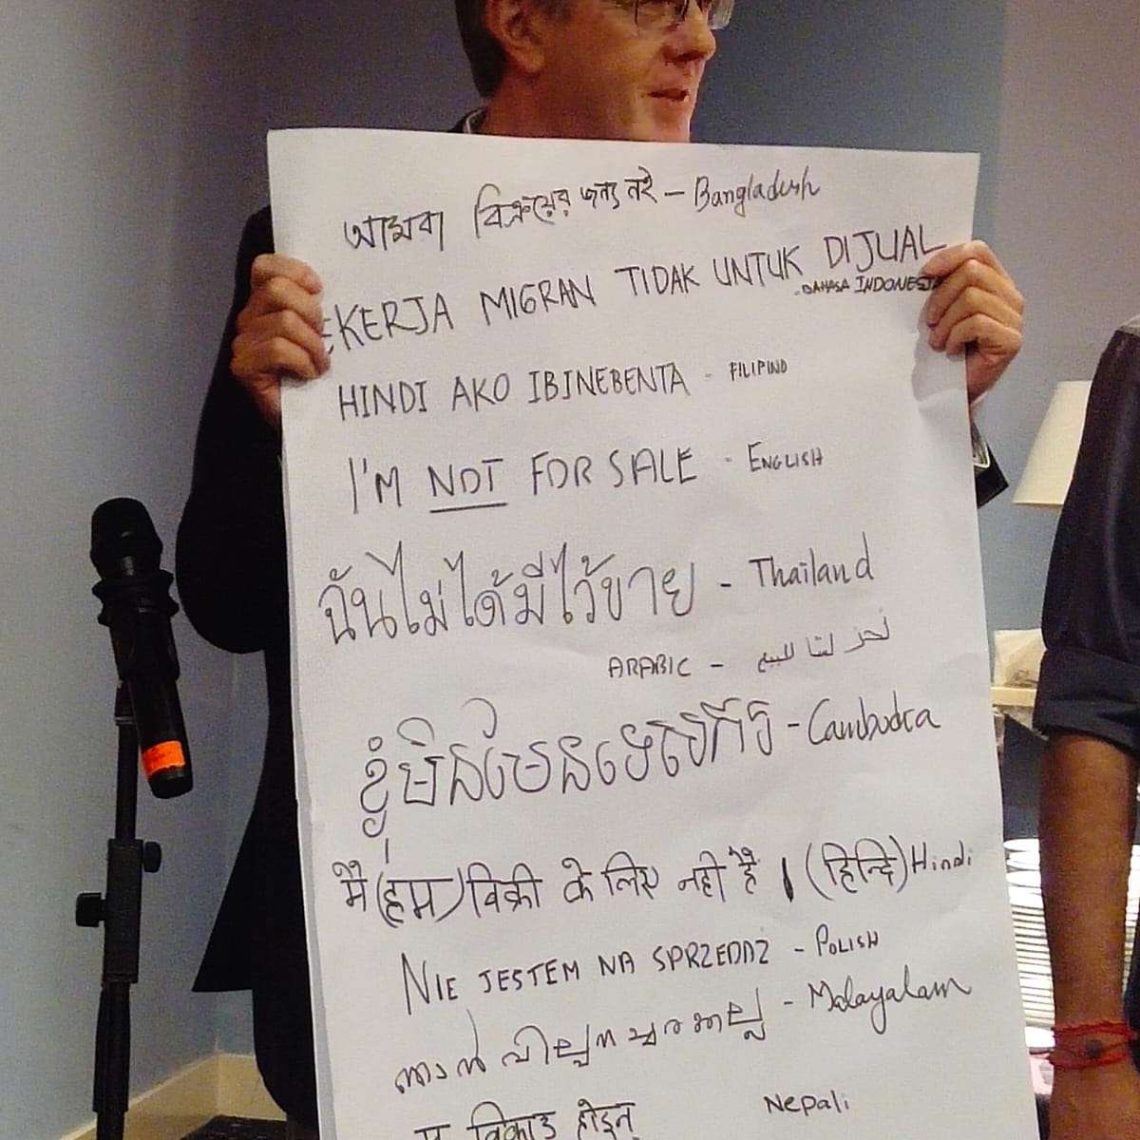 আমরা বিক্রয়ের জন্য নই – Bangladesh
EKERJA MIGRAN TIDAK UNTUK DIJUAL
- BAHASA INDONESIA
HINDI AKO IBINEBENTA - FILIPINO
I'M NOT FOR SALE - ENGLISH
ฉันไม่ได้มีไว้ขาย - Thailand
ARABIC - للبيع
ខ្ញុំមិនមែនទេ - Cambodia
मै (हम) विक्री के लिए नही है। (हिन्दि) Hindi
NIE JESTEM NA SPRZEDAZ - POLISH
ഞാൻ - Malayalam
म विकाउ होइन् Nepali